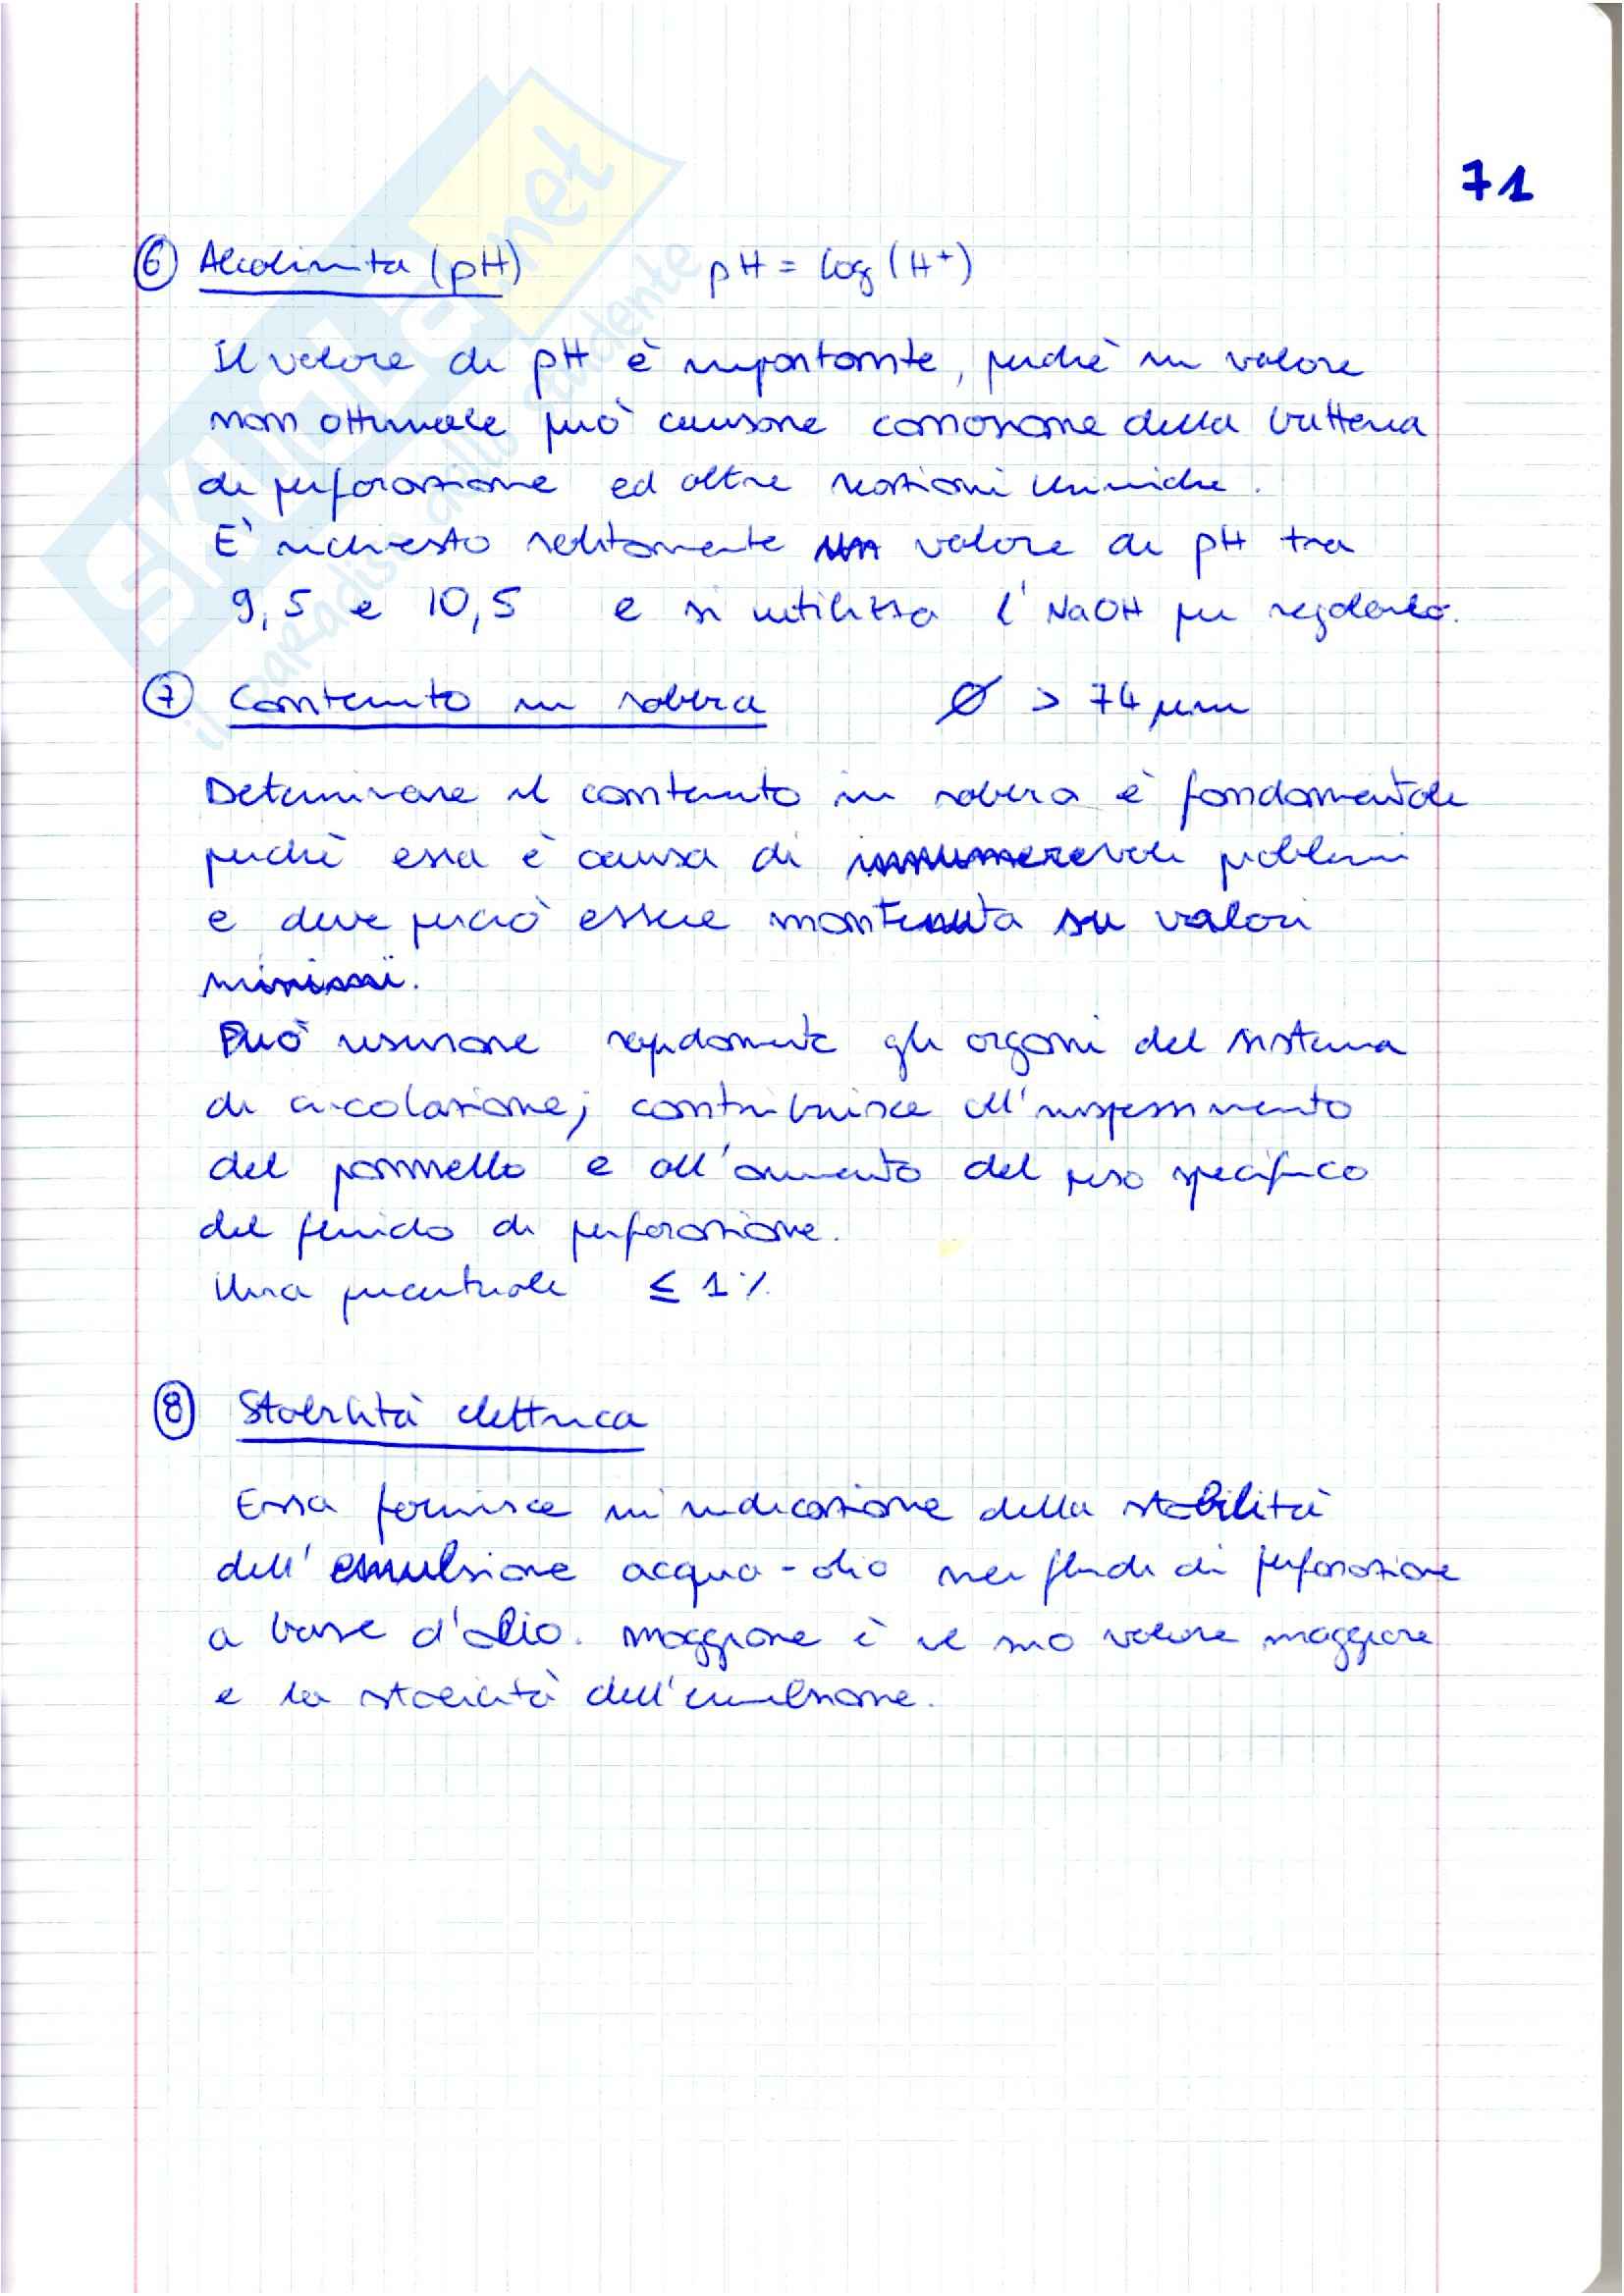 71
⑥ Alcalinità (pH) pH = log (H⁺)
Il valore di pH è importante, perchè un valore
non ottimale può causare corrosione della batteria
di perforazione ed altre reazioni chimiche.
E' richiesto solitamente un valore di pH tra
9,5 e 10,5 e si utilizza l'NaOH per regolarlo.
⑦ Contenuto in sabbia Ø > 74 μm
Determinare il contenuto in sabbia è fondamentale
perchè essa è causa di innumerevoli problemi
e deve perciò essere mantenuta su valori
minimi.
Può usurare rapidamente gli organi del sistema
di circolazione; contribuisce all'inspessimento
del pannello e all'aumento del peso specifico
del fluido di perforazione.
Una percentuale ≤ 1%
⑧ Stabilità elettrica
Essa fornisce un'indicazione della stabilità
dell'emulsione acqua-olio nei fluidi di perforazione
a base d'olio. maggiore è il suo valore maggiore
e la stabilità dell'emulsione.
SKUOLA.net
il paradiso dello studente